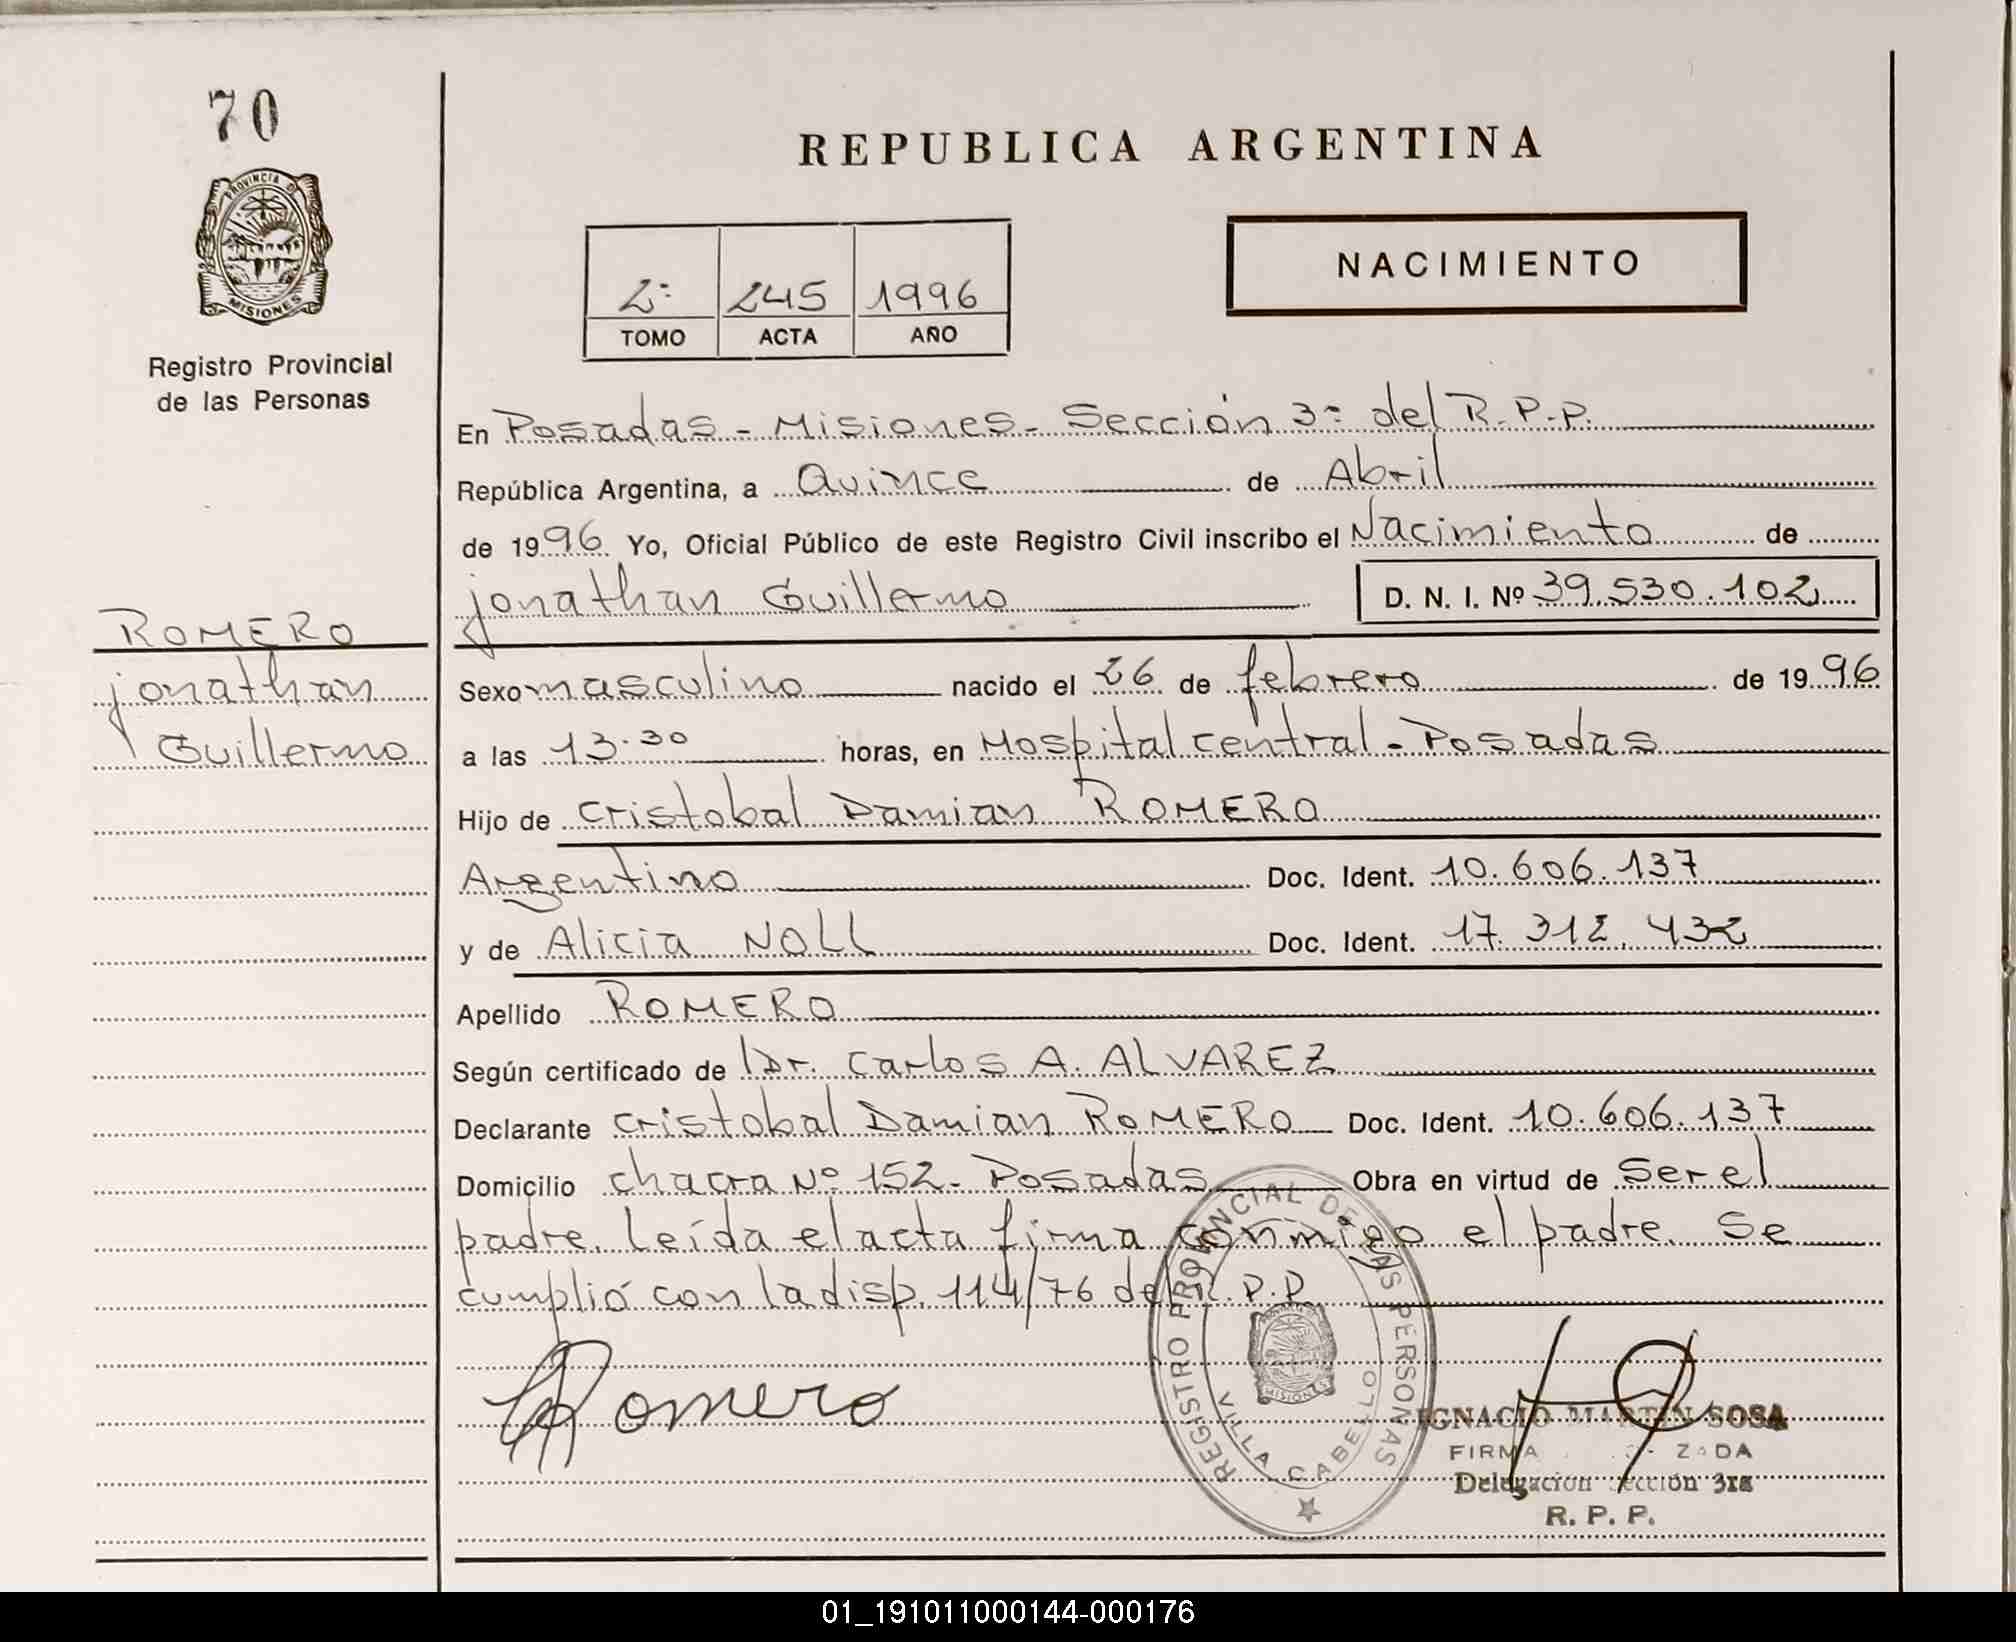 70
PROVINCIA DE
MISIONES
Registro Provincial
de las Personas
REPUBLICA ARGENTINA
2º 245 1996
TOMO ACTA AÑO
NACIMIENTO
En Posadas - Misiones - Sección 3º del R.P.P.
República Argentina, a Quince de Abril
de 1996 Yo, Oficial Público de este Registro Civil inscribo el Nacimiento de
jonathan Guillermo D. N. I. Nº 39.530.102
ROMERO
jonathan
Guillermo
Sexo masculino nacido el 26 de febrero de 1996
a las 13.30 horas, en Hospital central - Posadas
Hijo de Cristobal Damian ROMERO
Argentino Doc. Ident. 10.606.137
y de Alicia NOLL Doc. Ident. 17.312.432
Apellido ROMERO
Según certificado de Dr. Carlos A. ALVAREZ
Declarante Cristobal Damian ROMERO Doc. Ident. 10.606.137
Domicilio chacra Nº 152 - Posadas Obra en virtud de Ser el
padre. Leída el acta firma conmigo el padre. Se
cumplió con la disp. 114/76 del R.P.P.
Romero
REGISTRO PROVINCIAL DE LAS PERSONAS
MISIONES
VILLA CABELLO
IGNACIO MARTIN SOSA
FIRMA
Delegación Sección 3ra
R. P. P.
01_191011000144-000176